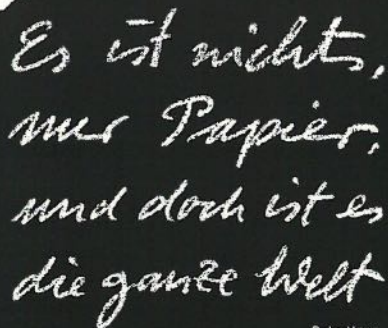 Es ist nichts,
nur Papier,
und doch ist es
die ganze Welt